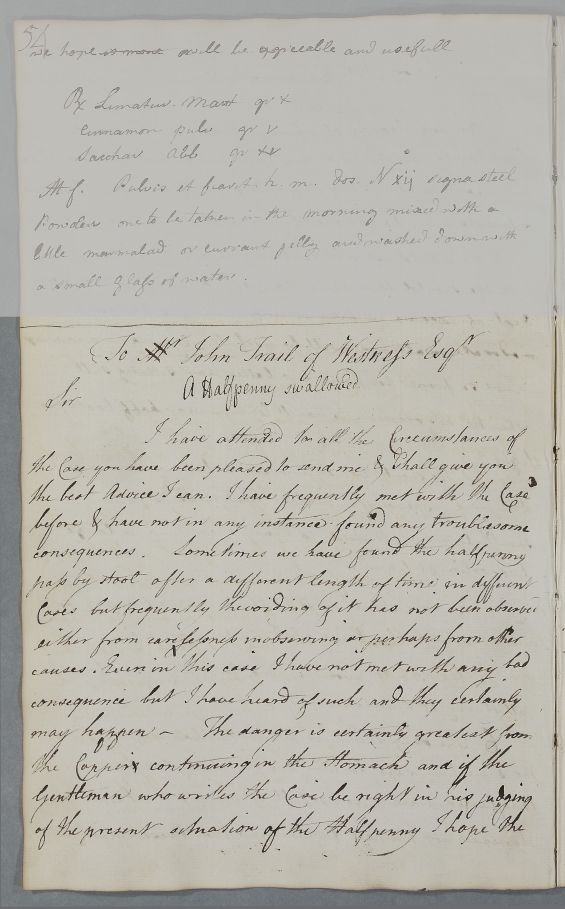 54
we hope is most will be agreeable and usefull
Rx Limatur. Mart gr x
Cinnamon pulv gr v
Sacchar Alb gr xv
M f. Pulvis et fiant h. m. dos. No xij signa steel
Powders one to be taken in the morning mixed with a
little marmalad or currant jelly and washed down with
a small Glass of water.
To Mr John Trail of Westness Esqr
A Halfpenny swallowed
Sir
I have attended to all the Circumstances of
the Case you have been pleased to send me & Shall give you
the best Advice I can. I have frequently met with the Case
before & have not in any instance found any troublesome
consequences. Sometimes we have found the halfpenny
pass by stool after a different length of time in different
Cases but frequently the voiding of it has not been observed
either from carelessness in observing or perhaps from other
causes. Even in this case I have not met with any bad
consequence but I have heard of such and they certainly
may happen – The danger is certainly greatest from
the Copper continuing in the Stomach and if the
Gentleman who writes the Case be right in his judging
of the present situation of the Halfpenny I hope the